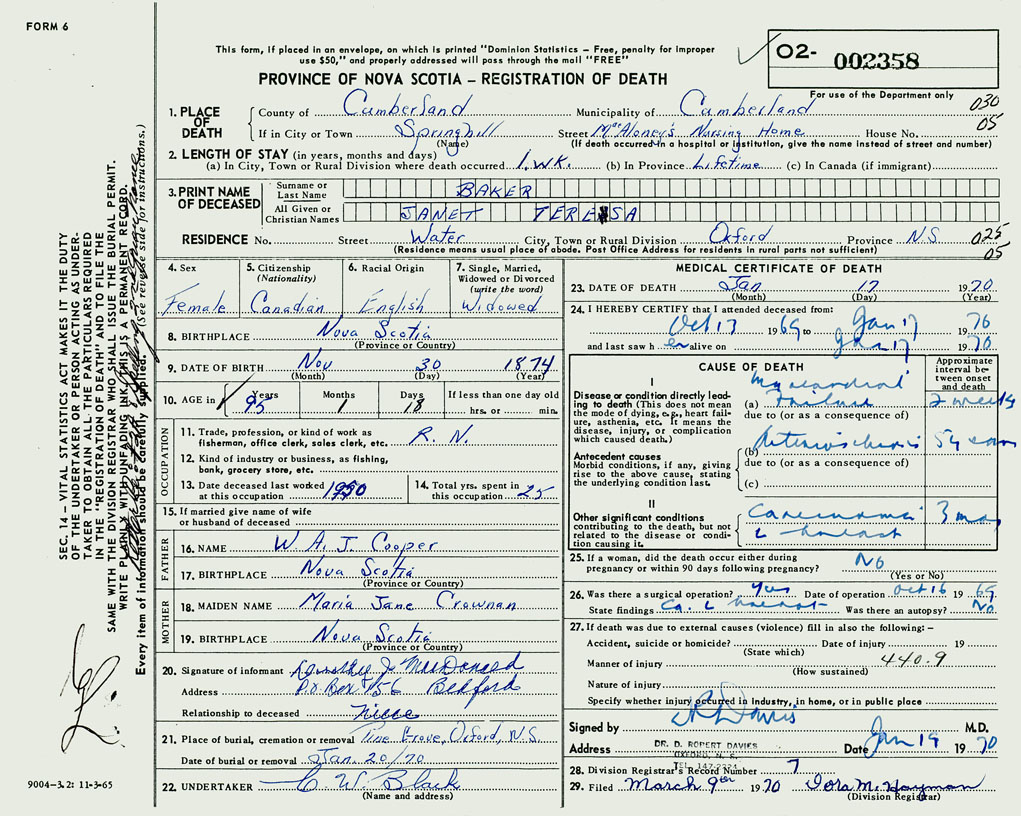 FORM 6
This form, if placed in an envelope, on which is printed "Dominion Statistics – Free, penalty for improper
use $50," and properly addressed will pass through the mail "FREE"
PROVINCE OF NOVA SCOTIA – REGISTRATION OF DEATH
02- 002358
For use of the Department only
030
05
1. PLACE OF DEATH
County of Cumberland Municipality of Cumberland
If in City or Town Springhill Street MacAloney's Nursing Home House No.
(Name) (If death occurred in a hospital or institution, give the name instead of street and number)
2. LENGTH OF STAY (in years, months and days)
(a) In City, Town or Rural Division where death occurred 1. WK. (b) In Province Lifetime (c) In Canada (if immigrant)
3. PRINT NAME OF DECEASED
Surname or Last Name BAKER
All Given or Christian Names JANET TERESA
RESIDENCE No. Street Water City, Town or Rural Division Oxford Province N.S 025
05
(Residence means usual place of abode. Post Office Address for residents in rural parts not sufficient)
4. Sex
Female
5. Citizenship
(Nationality)
Canadian
6. Racial Origin
English
7. Single, Married,
Widowed or Divorced
(write the word)
Widowed
8. BIRTHPLACE Nova Scotia
(Province or Country)
9. DATE OF BIRTH Nov 30 1874
(Month) (Day) (Year)
10. AGE in Years Months Days If less than one day old
95 1 18 hrs. or min.
OCCUPATION
11. Trade, profession, or kind of work as
fisherman, office clerk, sales clerk, etc. R. N.
12. Kind of industry or business, as fishing,
bank, grocery store, etc.
13. Date deceased last worked
at this occupation 1950
14. Total yrs. spent in
this occupation 25
15. If married give name of wife
or husband of deceased
FATHER
16. NAME W. A. J. Cooper
17. BIRTHPLACE Nova Scotia
(Province or Country)
MOTHER
18. MAIDEN NAME Maria Jane Crownan
19. BIRTHPLACE Nova Scotia
(Province or Country)
20. Signature of informant Dorothy J MacDonald
Address P.O. Box 756 Bedford
Relationship to deceased Niece
21. Place of burial, cremation or removal Pine Grove, Oxford, N.S.
Date of burial or removal Jan. 20/70
22. UNDERTAKER C. W. Black
(Name and address)
MEDICAL CERTIFICATE OF DEATH
23. DATE OF DEATH Jan 17 1970
(Month) (Day) (Year)
24. I HEREBY CERTIFY that I attended deceased from:
Oct 13 1969 to Jan 17 1970
and last saw her alive on Jan 17 1970
CAUSE OF DEATH
Approximate interval between onset and death
I
Disease or condition directly leading to death (This does not mean
the mode of dying, e.g., heart failure, asthenia, etc. It means the
disease, injury, or complication
which caused death.)
Myocardial
(a) Failure 2 weeks
due to (or as a consequence of)
Antecedent causes
Morbid conditions, if any, giving
rise to the above cause, stating
the underlying condition last.
(b) Arteriosclerosis 5 years
due to (or as a consequence of)
(c)
II
Other significant conditions
contributing to the death, but not
related to the disease or condition causing it.
Carcinoma 3 mos
L breast
25. If a woman, did the death occur either during
pregnancy or within 90 days following pregnancy? No
(Yes or No)
26. Was there a surgical operation? yes Date of operation Oct 16 1969
State findings Ca. L breast Was there an autopsy? No
27. If death was due to external causes (violence) fill in also the following: –
Accident, suicide or homicide? Date of injury 19
(State which)
Manner of injury 440.9
(How sustained)
Nature of injury
Specify whether injury occurred in Industry, in home, or in public place
Signed by D R Davies M.D.
Address DR. D. ROPERT DAVIES Date Jan 19 1970
OXFORD, N. S.
TEL 147-2324
28. Division Registrar's Record Number 7
29. Filed March 9th 1970 Iora M. Hayman
(Division Registrar)
SEC. 14 – VITAL STATISTICS ACT MAKES IT THE DUTY
OF THE UNDERTAKER OR PERSON ACTING AS UNDERTAKER TO OBTAIN ALL THE PARTICULARS REQUIRED
IN THE "REGISTRATION OF DEATH" AND TO FILE THE
SAME WITH THE DIVISION REGISTRAR WHO SHALL ISSUE THE BURIAL PERMIT.
WRITE PLAINLY WITH UNFADING INK (THIS IS A PERMANENT RECORD.
Every item of information should be carefully supplied. (See reverse side for instructions.)
9004-3.2: 11-3-65